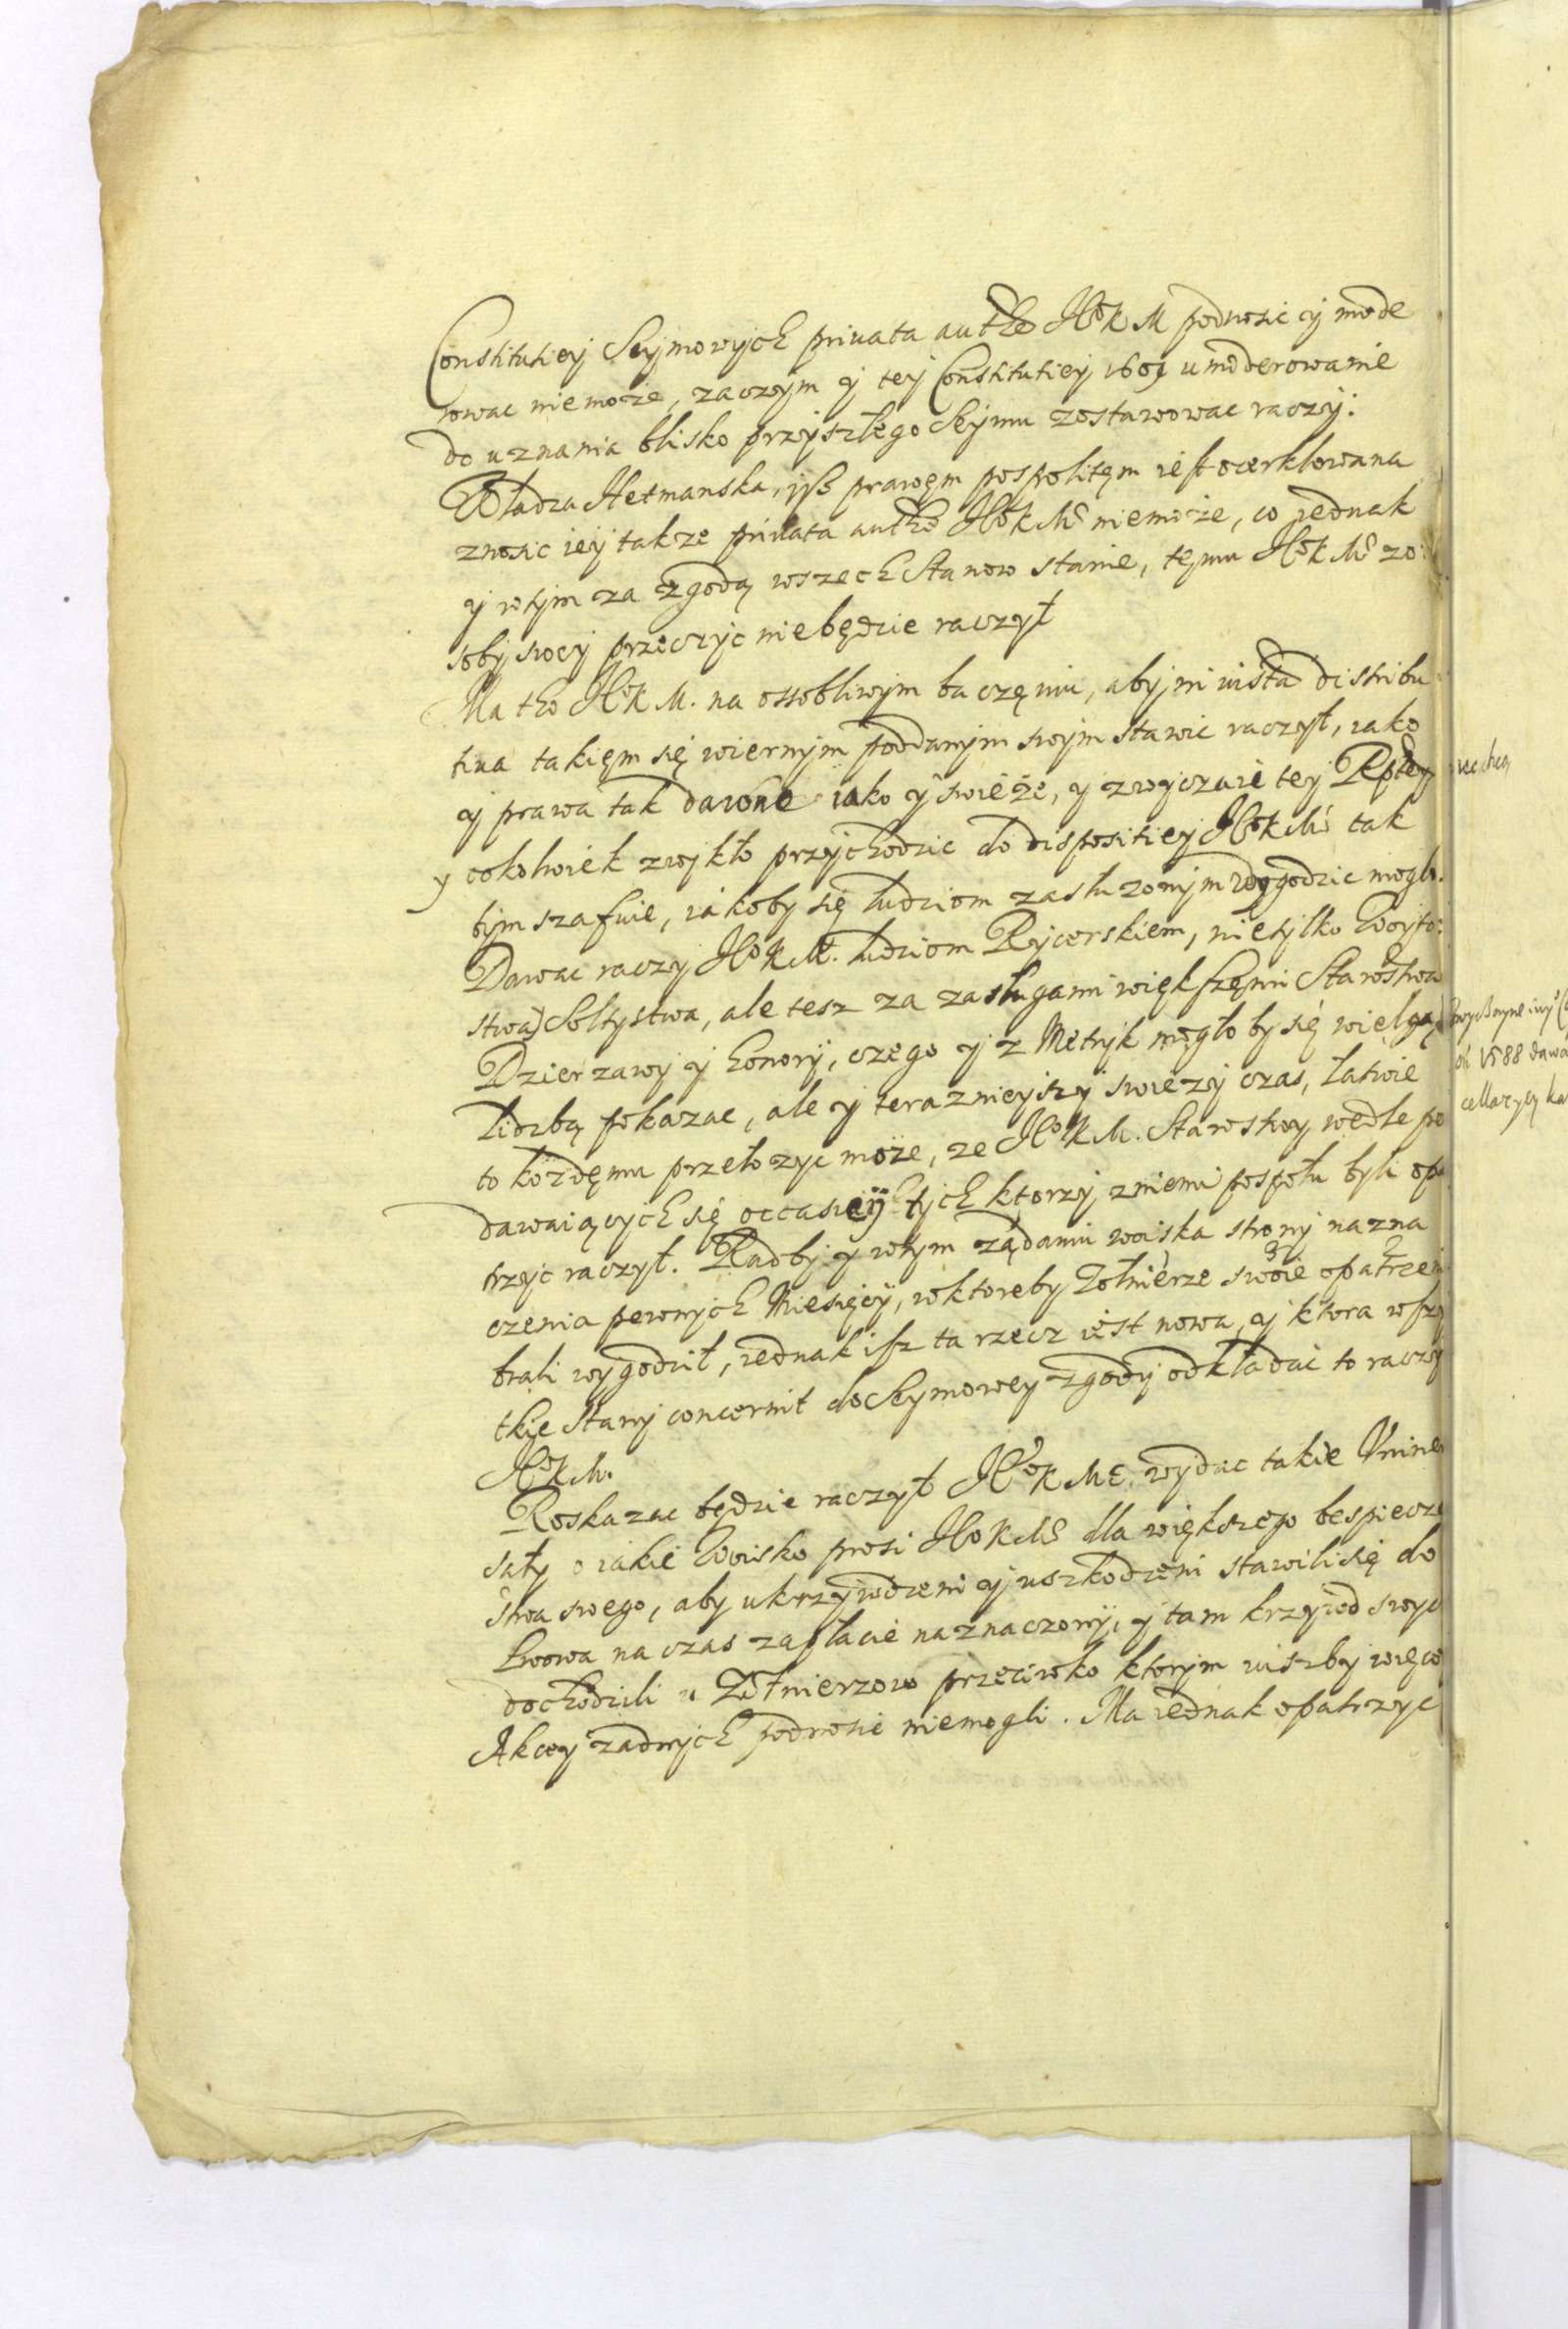 Constitutiey Seymowych priuata autho JHo K M podnosic y mode
rowac niemoze, zaczym y tey Constitutiey 1609 umoderowanie
do uznania blisko przyszłego Seymu zostawowac raczy:
Władza Hetmanska, jß prawęm pospolitęm iest ocerklowana
znosic iey takze priuata autho JHo K Mc niemoże, co iednak
y wtym za zgodą wszech Stanow stanie, temu JHo K Mc zo:
soby swey przeczyc niebędzie raczył
Ma tho JHo K M. na ossobliwym baczęniu, aby mi iusta distribu
tiua takięm się wiernym poddanym swym stawic raczył, iako
y prawa tak dawne iako y swieże, y zwyczaie tey Rptey
y cokolwiek zwykło przychodzic do dispositiey JHo K Mc tak
tym szafuie, iakoby się ludziom zasłuzonym wygodzic mogło.
Dawac raczy JHo K M. ludziom Rycerskiem, nietylko Woyto:
stwa) Soltystwa, ale tesz za zasługami większęmi Starostwa
Dzierzawy y honory, czego y z Metryk mogło by się wielgą
liczbą pokazac, ale y terazniejszy swiezy czas, łatwie
to kozdęmu przełozyc może, ze JHo K M. Starostwy wedle po
dawaiących się occasiey tych ktorzy zniemi pospołu byli opa
trzyc raczył. Radby y wtym ządaniu woiska strony nazna
czenia pewnych Miesięcy, wktoreby Zołnierze swoie opatrzeni
brali wygodził, iednak isz ta rzecz iest nowa, y ktora wszy
tkie Stany concernit do Seymowey zgody odkładac to raczy
JHo K M.
Roskazac będzie raczył JHo K Mc wydac takie Uniuer
sały o iakie Woisko prosi JHo K Mc dla większego bespiecze
stwa swego, aby ukrzywdzeni y uszkodzeni stawili się do
Lwowa na czas zapłacie naznaczony, y tam krzywd swych
dochodzili u Zołnierzow przeciwko ktorym iuszby więcey
Akcey zadnych podnosic niemogli. Ma iednak opatrzyc
1588 dawa